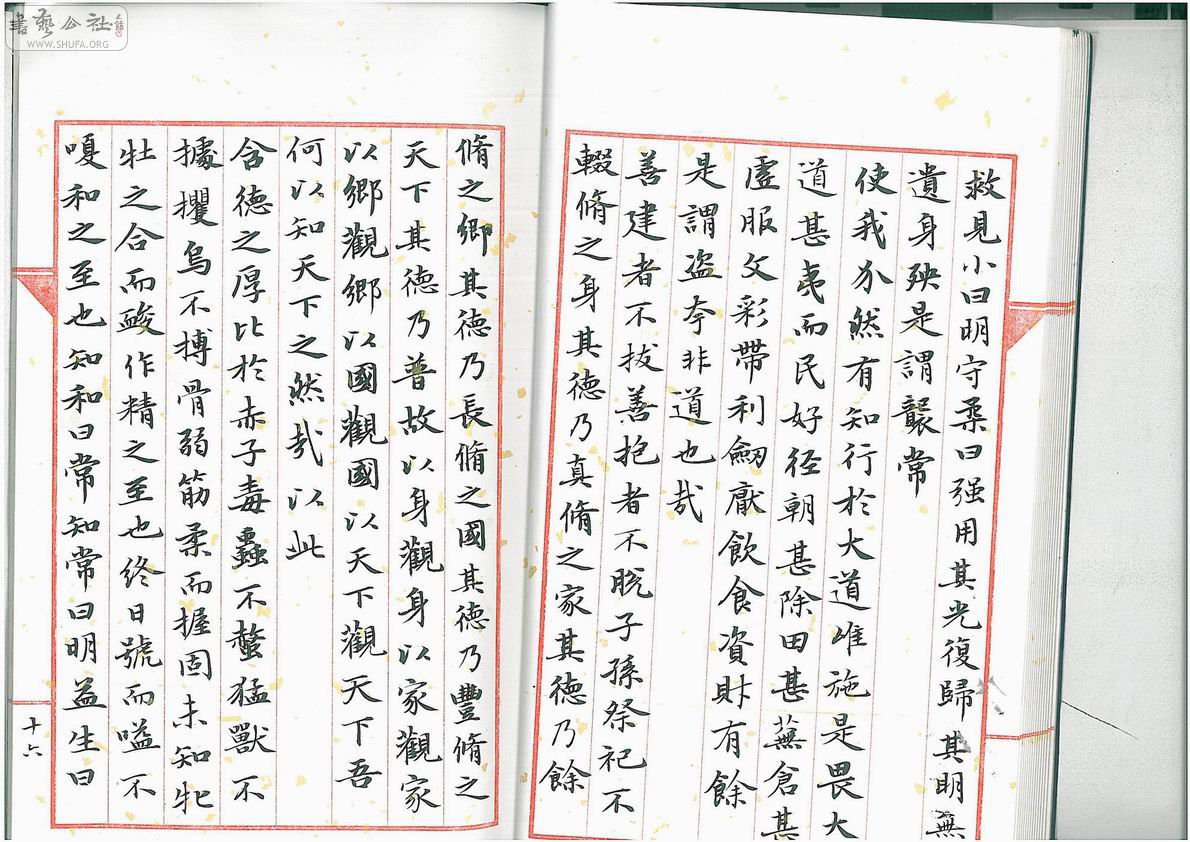 書藝公社
WWW.SHUFA.ORG
救見小曰明守柔曰强用其光復歸其明無
遺身殃是謂襲常
使我介然有知行於大道唯施是畏大
道甚夷而民好徑朝甚除田甚蕪倉甚
虛服文彩帶利劒厭飲食資財有餘
是謂盗夸非道也哉
善建者不拔善抱者不脫子孫祭祀不
輟脩之身其德乃真脩之家其德乃餘
脩之鄉其德乃長脩之國其德乃豐脩之
天下其德乃普故以身觀身以家觀家
以鄉觀鄉以國觀國以天下觀天下吾
何以知天下之然哉以此
含德之厚比於赤子毒蟲不螫猛獸不
據攫鳥不搏骨弱筋柔而握固未知牝
牡之合而䘒作精之至也終日號而嗌不
嗄和之至也知和曰常知常曰明益生曰
十六